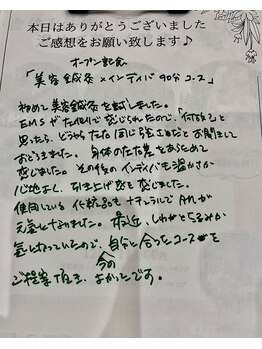 本日はありがとうございました
ご感想をお願い致します♪
オープン記念
「美容鍼灸×インディバ90分コース」
初めて美容鍼灸を試しました。
EMSが左右側で感じられたので、「何故?」と
思ったら、どうやら左右同じ強さだとお聞きして
おどろきました。身体の左右差をあらためて
感じました。その後のインディバも温かさが
心地よく、引き上げ感を感じました。
使用している化粧品もナチュラルで肌が
元気になりました。最近、しわがとるみが
気になっていたので、自分と合ったコースを
今の
ご提案頂き、よかったです。